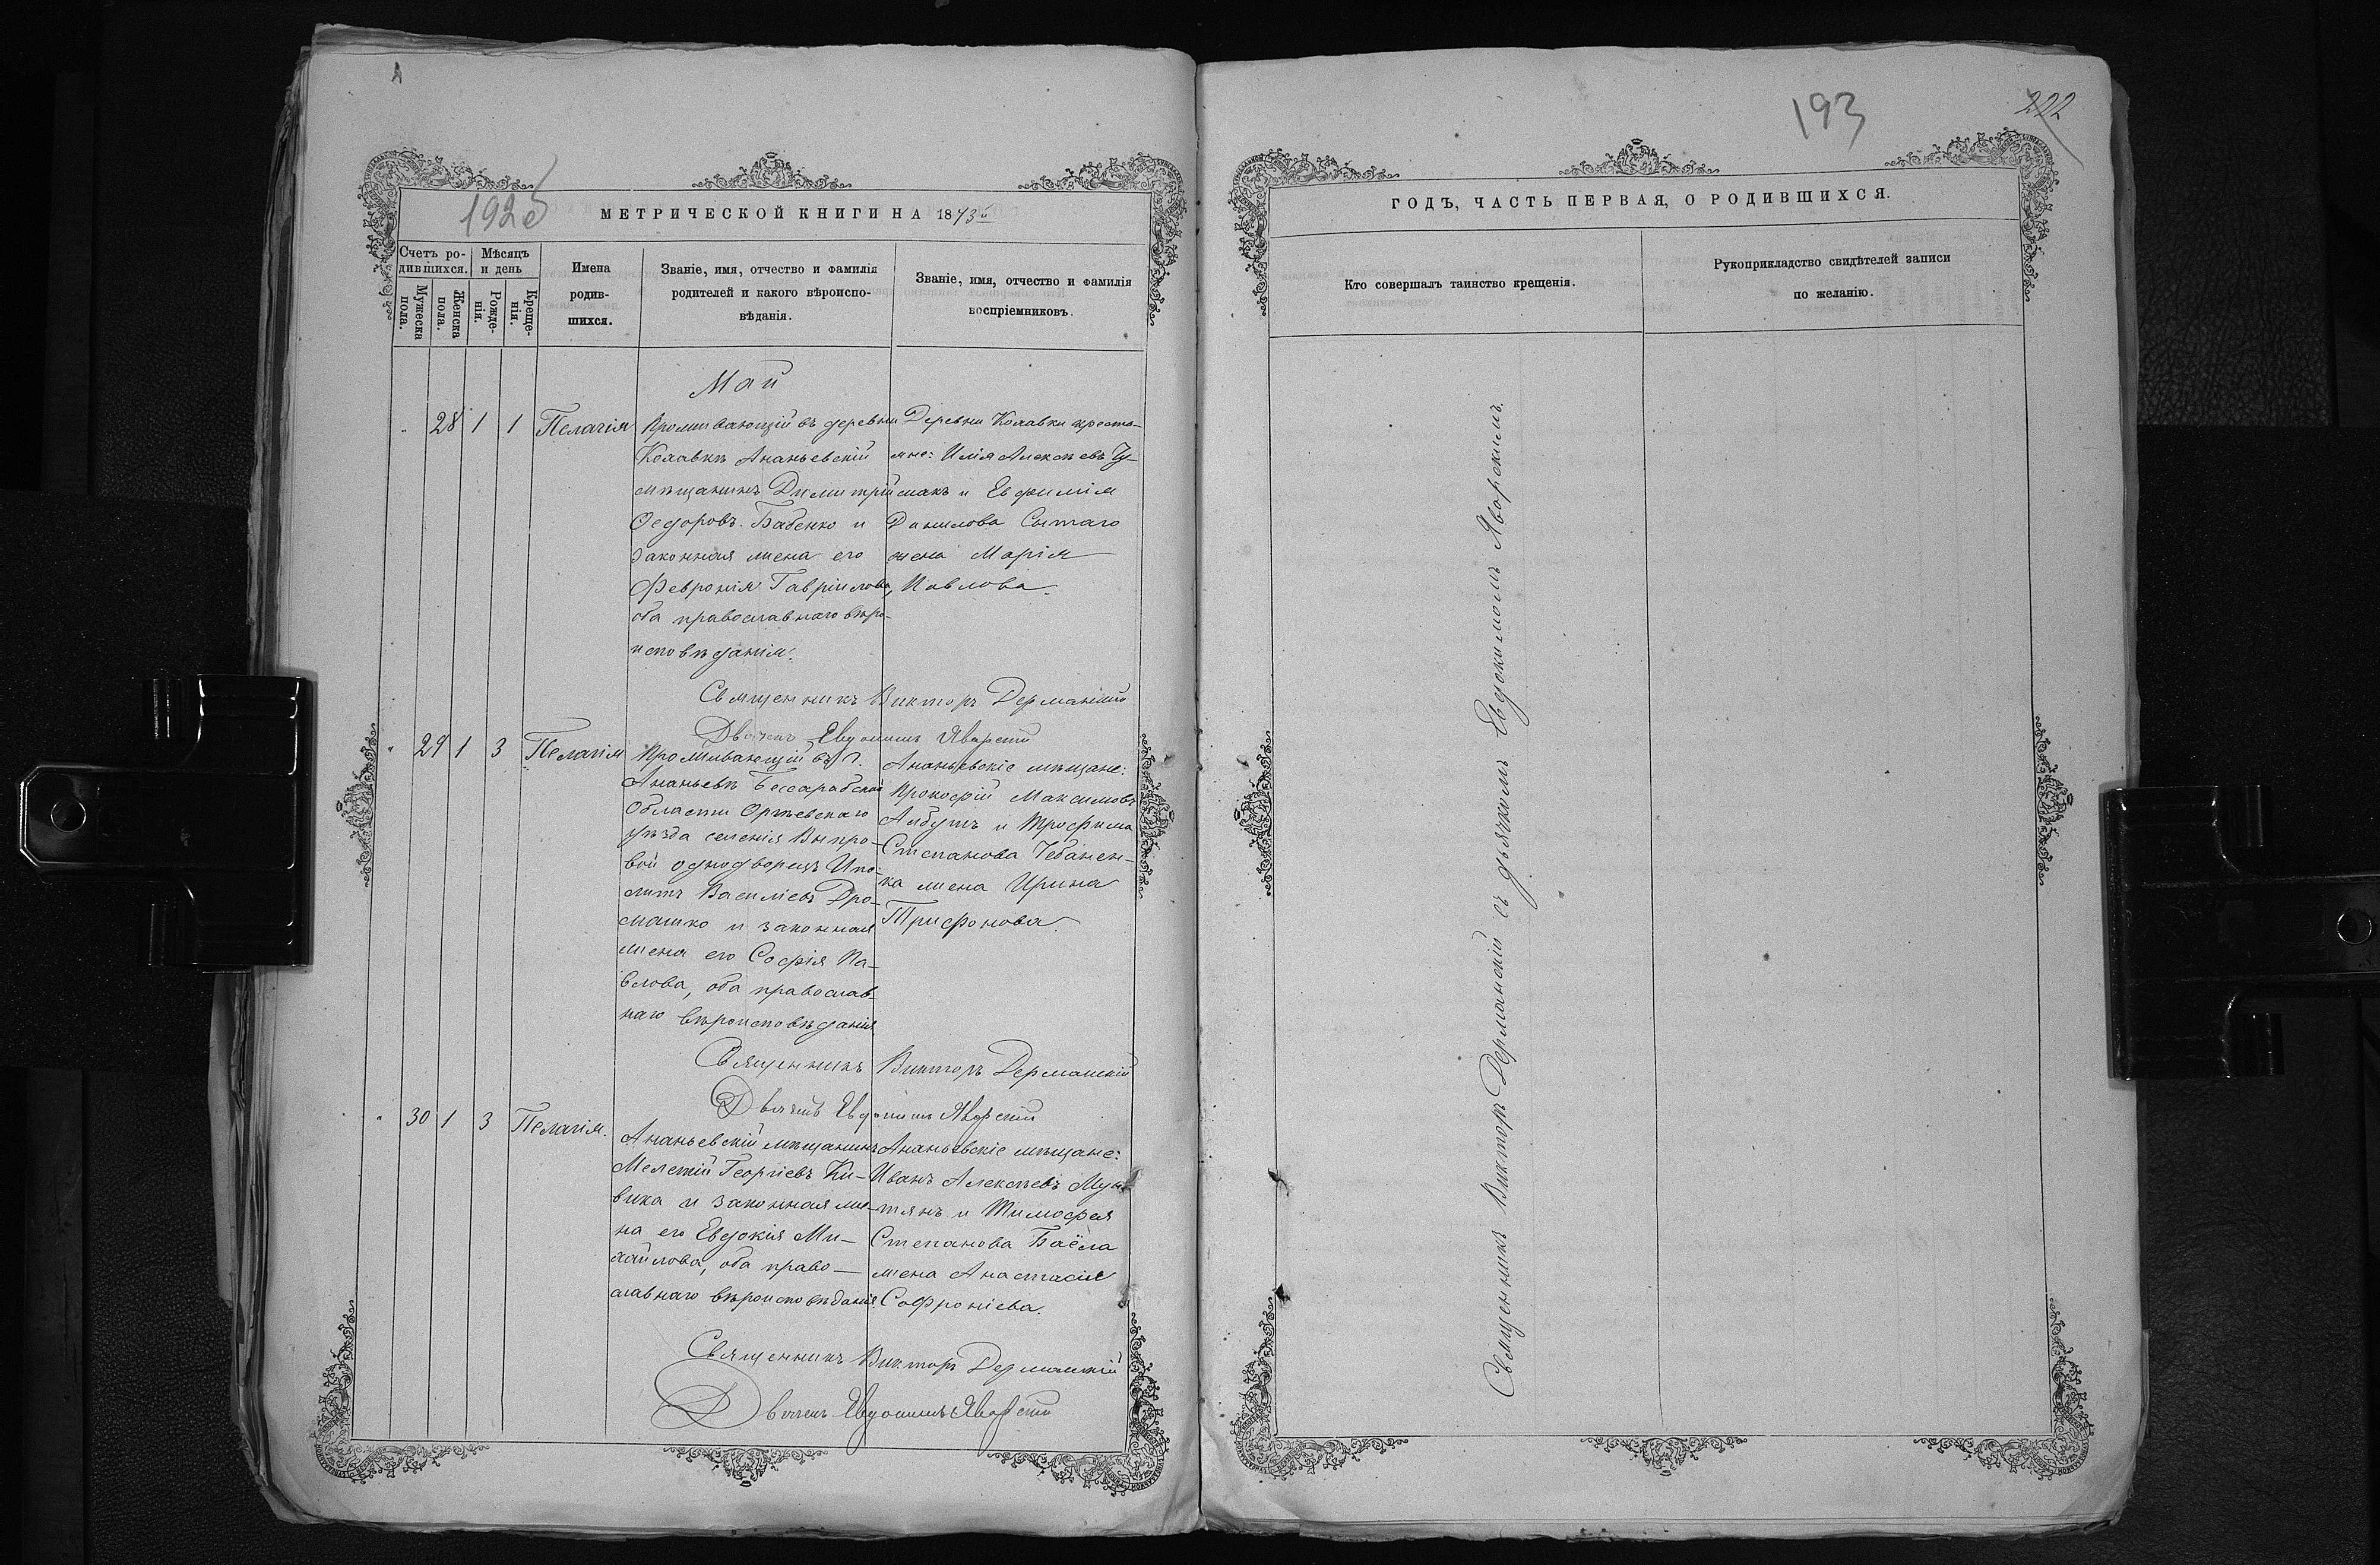 192об
МЕТРИЧЕСКОЙ КНИГИ НА 1873й
Счетъ ро-
дившихся.
Мѣсяцъ
и день
Мужеска
пола.
Женска
пола.
Рожде-
нія.
Креще-
нія.
Имена
родив-
шихся.
Званіе, имя, отчество и фамилія
родителей и какого вѣроиспо-
вѣданія.
Званіе, имя, отчество и фамилія
воспріемниковъ.
Май
28 1 1 Пелагія
Проживающій въ деревни
Ананьевскій
мѣщанинъ Димитрій
Ѳедоровъ Бабенко и
законная жена его
Февронія Гавріилова,
оба православнаго вѣро-
исповѣданія.
Деревни кресть-
яне: Илія Алексѣевъ Чу-
макъ и Евфимія
Данилова Сытаго
жена Марія
Павлова.
Священникъ Викторъ Дерманскій
Дьячекъ Евдокимъ Яворскій
29 1 3 Пелагія
Проживающій въ г.
Ананьевѣ Бессарабской
Области Оргѣевскаго
уѣзда селенія Выпро-
вой однодворецъ Ипо-
литъ Василіевъ Дро-
машко и законная
жена его Софія Па-
влова, оба православ-
наго вѣроисповѣданія
Ананьевскіе мѣщане:
Прокофій Максимовъ
Албутъ и Трофима
Степанова Чебанен-
ка жена Ирина
Трифонова.
Священникъ Викторъ Дерманскій
Дьячекъ Евдокимъ Яворскій
30 1 3 Пелагія.
Ананьевскій мѣщанинъ
Мелетій Георгіевъ Ки-
вика и законная же-
на его Евдокія Ми-
хайлова, оба право-
славнаго вѣроисповѣданія.
Ананьевскіе мѣщане:
Иванъ Алексѣевъ Мун-
тянъ и Тимофея
Степанова Баёла
жена Анастасія
Софроніева.
Священникъ Викторъ Дерманскій
Дьячекъ Евдокимъ Яворскій
193
222
ГОДЪ, ЧАСТЬ ПЕРВАЯ, О РОДИВШИХСЯ.
Кто совершалъ таинство крещенія.
Рукоприкладство свидѣтелей записи
по желанію.
Священникъ Викторъ Дерманскій съ дьячкомъ Евдокимомъ Яворскимъ.